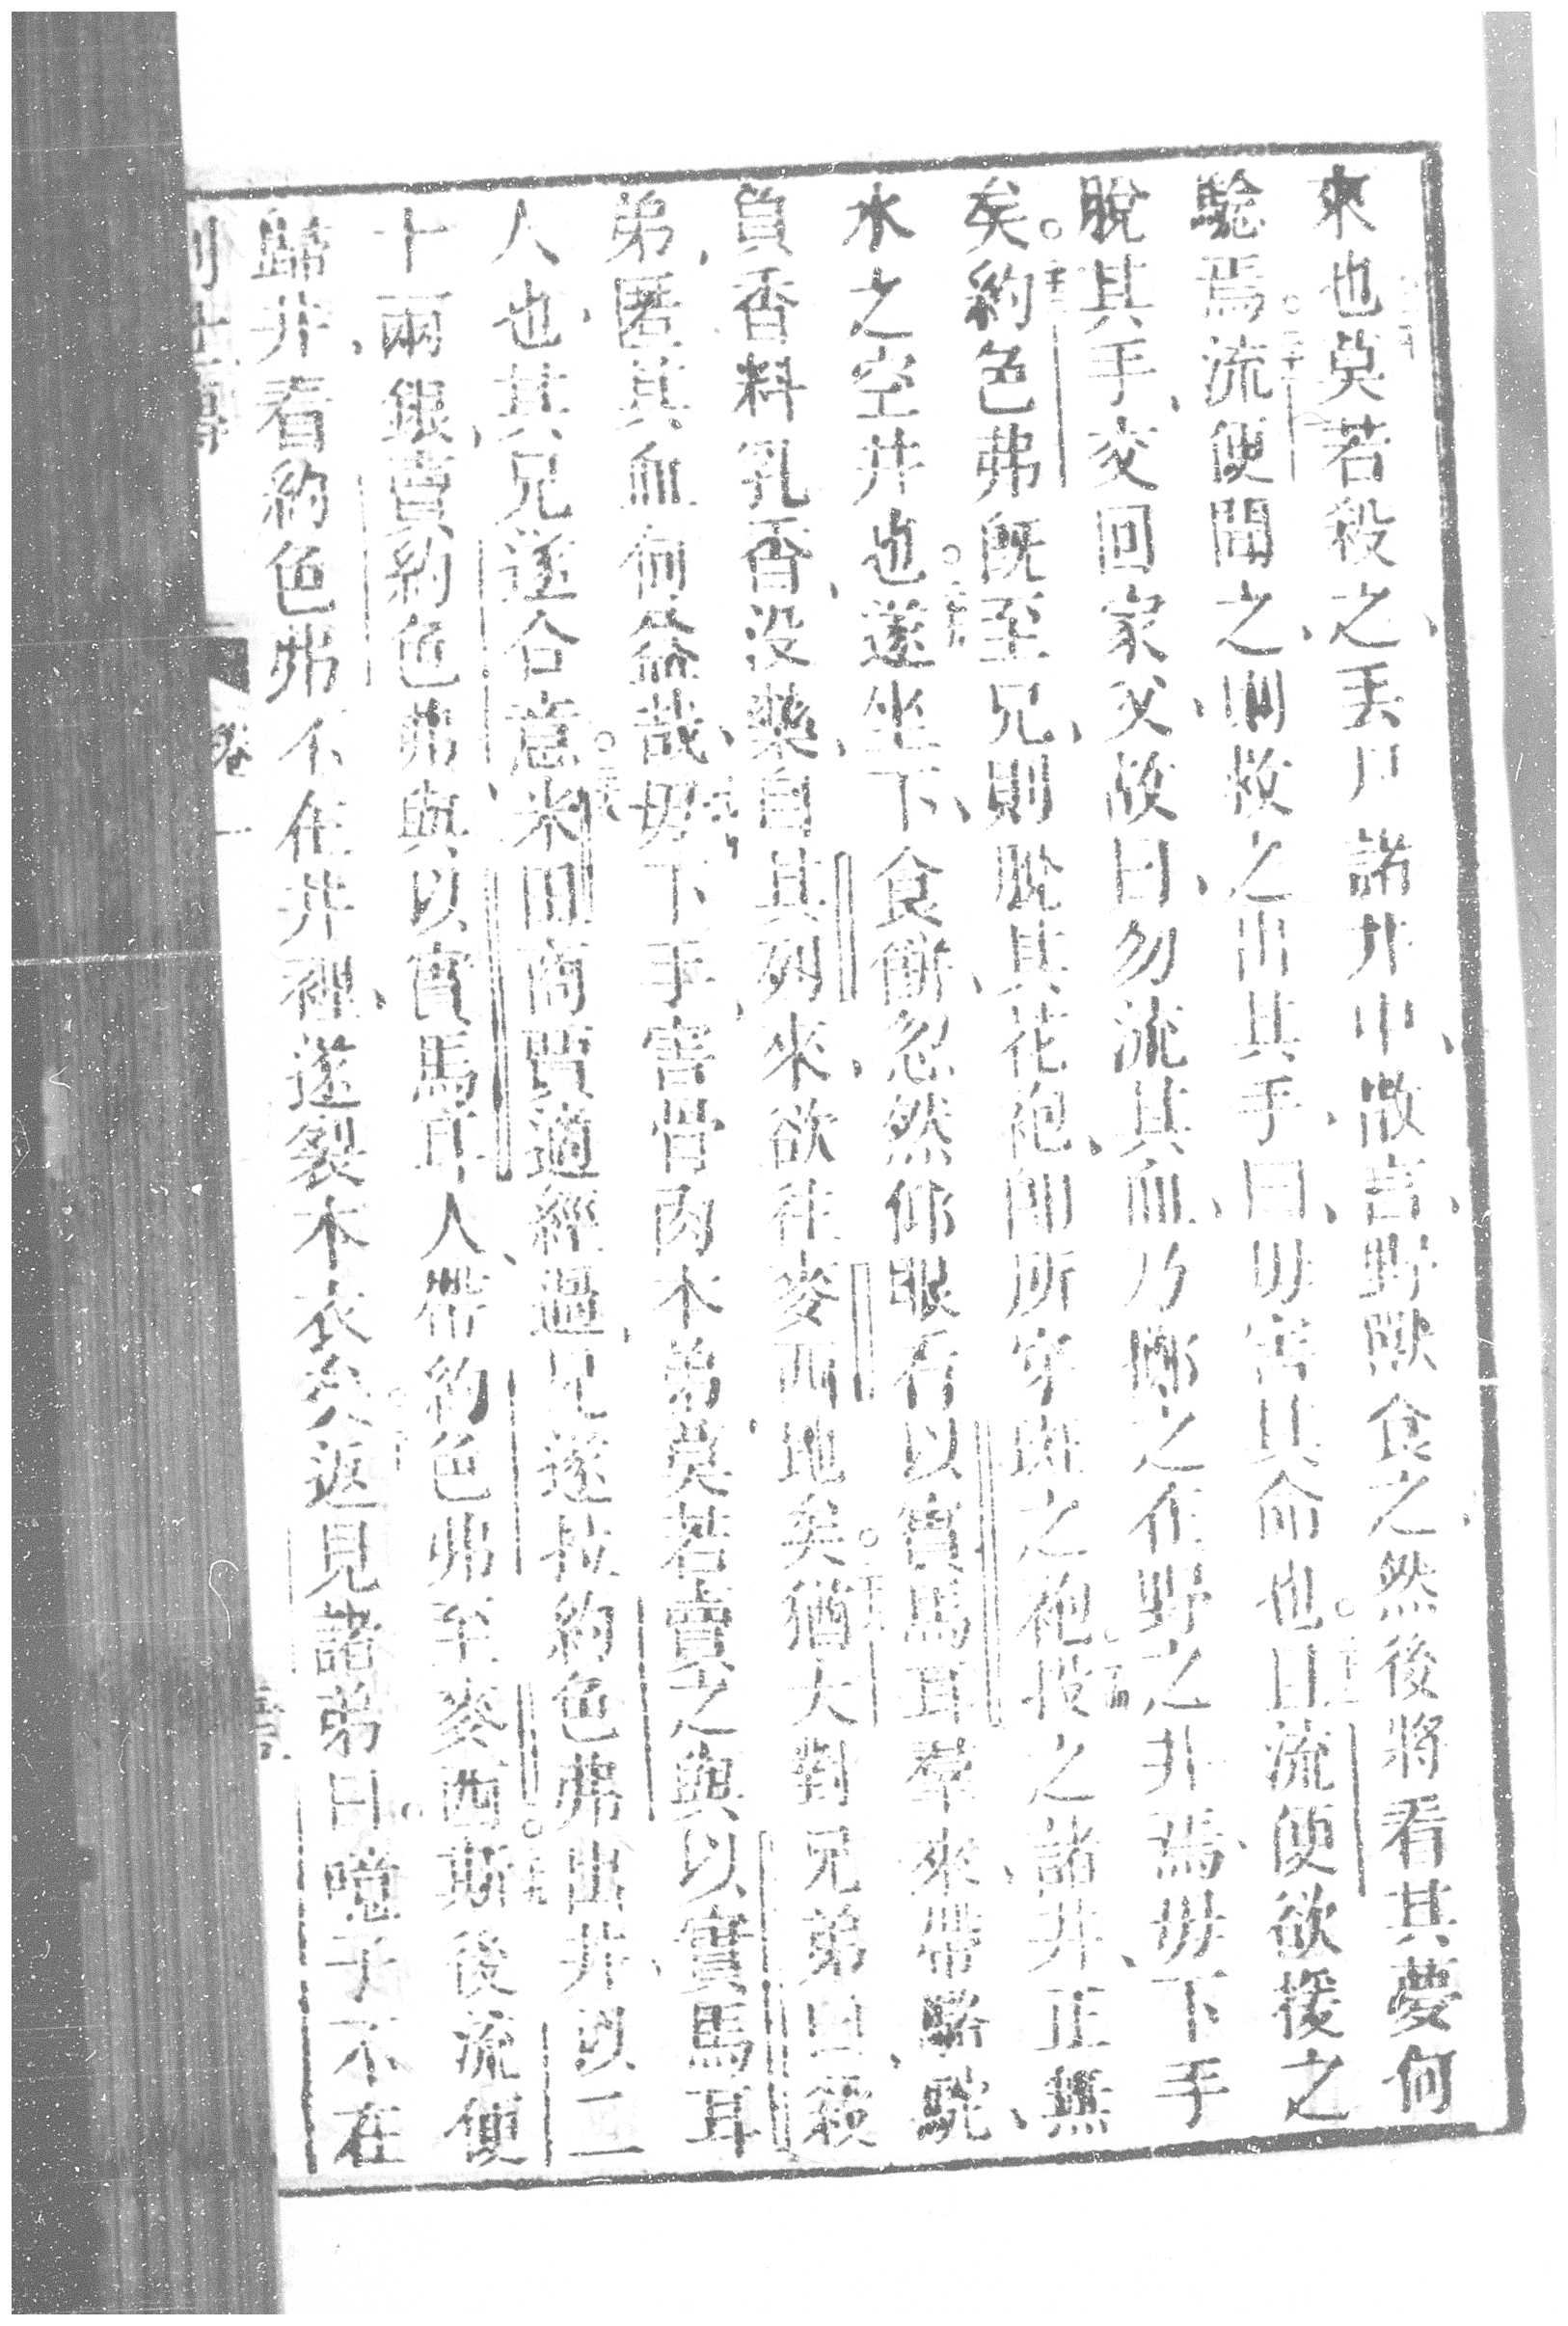 來也莫若殺之丟尸諸井中泚言野獸食之然後將看其夢何
騐焉流便聞之則救之出其手曰毋害其命也且流便欲援之
脫其手交回家父故曰勿流其血乃擲之在野之井焉毋下手
矣約色弗旣至兄則脫其花袍卽所穿斑之袍投之諸井正無
水之空井也遂坐下食餅忽然仰眼看以實馬耳羣來帶駱駝
負香料乳香没藥自其列來欲往麥西地矣猶大對兄弟曰殺
弟匿其血何益哉毋下手害骨肉本弟莫若賣之與以實馬耳
人也其兄遂合意米田商賈適經過兄遂拉約色弗出井以二
十兩銀賣約色弗與以實馬耳人帶約色弗至麥西斯後流便
歸井看約色弗不在井裡遂裂本衣矣返見諸弟曰噫子不在
卷一